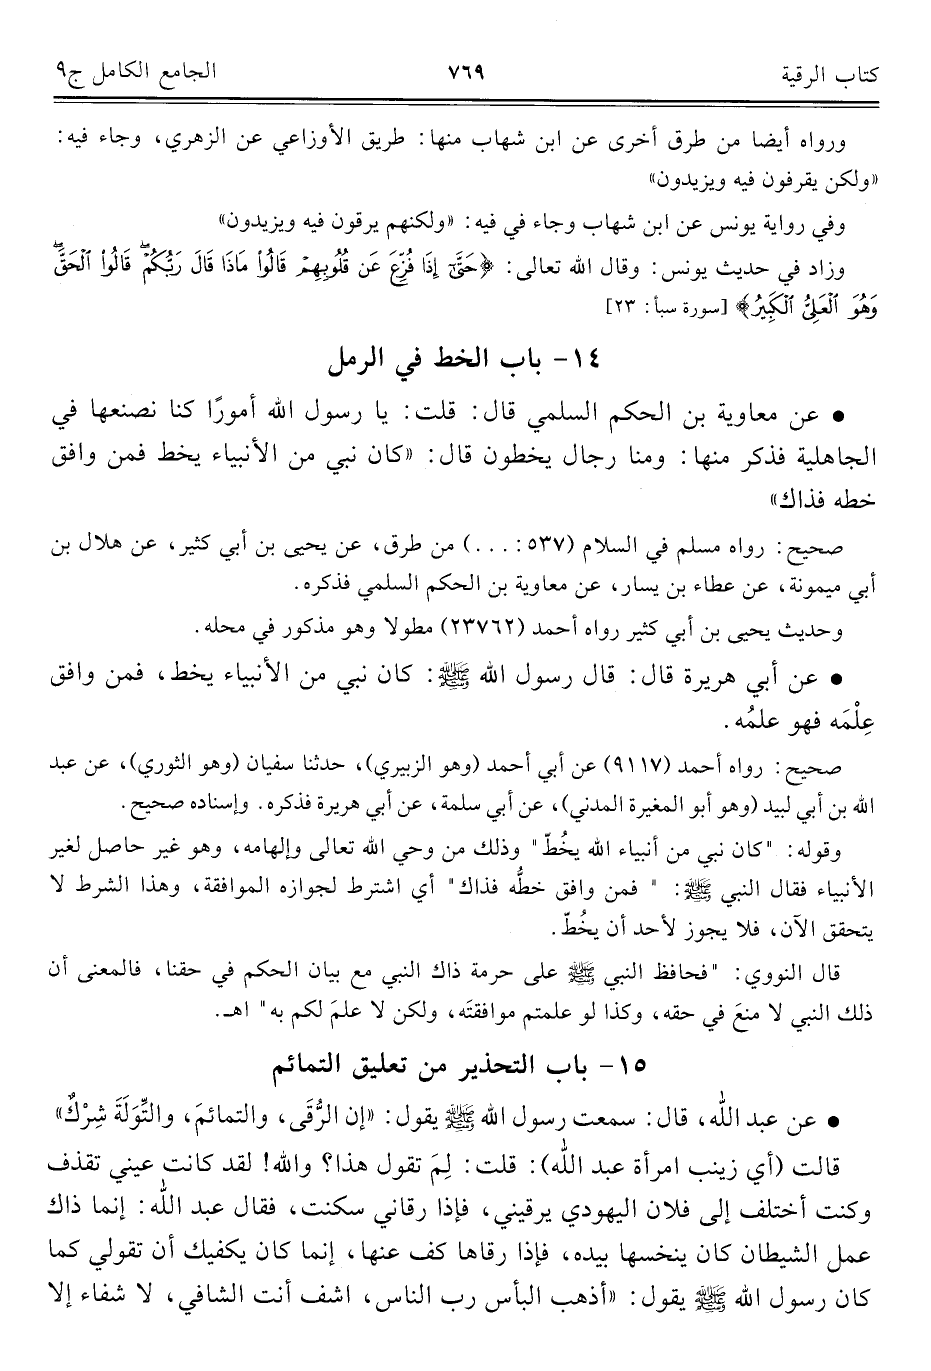 كتاب الرقية ٧٦٩ الجامع الكامل ج٩
ورواه أيضا من طرق أخرى عن ابن شهاب منها: طريق الأوزاعي عن الزهري، وجاء فيه:
«ولكن يقرفون فيه ويزيدون»
وفي رواية يونس عن ابن شهاب وجاء في فيه: «ولكنهم يرقون فيه ويزيدون»
وزاد في حديث يونس: وقال الله تعالى: ﴿حَتَّىٰٓ إِذَا فُزِّعَ عَن قُلُوبِهِمۡ قَالُواْ مَاذَا قَالَ رَبُّكُمۡۖ قَالُواْ ٱلۡحَقَّۖ
وَهُوَ ٱلۡعَلِيُّ ٱلۡكَبِيرُ﴾ [سورة سبأ: ٢٣]
١٤- باب الخط في الرمل
• عن معاوية بن الحكم السلمي قال: قلت: يا رسول الله أمورًا كنا نصنعها في
الجاهلية فذكر منها: ومنا رجال يخطون قال: «كان نبي من الأنبياء يخط فمن وافق
خطه فذاك»
صحيح: رواه مسلم في السلام (٥٣٧: ...) من طرق، عن يحيى بن أبي كثير، عن هلال بن
أبي ميمونة، عن عطاء بن يسار، عن معاوية بن الحكم السلمي فذكره.
وحديث يحيى بن أبي كثير رواه أحمد (٢٣٧٦٢) مطولا وهو مذكور في محله.
• عن أبي هريرة قال: قال رسول الله ﷺ: كان نبي من الأنبياء يخط، فمن وافق
عِلْمَه فهو علمُه.
صحيح: رواه أحمد (٩١١٧) عن أبي أحمد (وهو الزبيري)، حدثنا سفيان (وهو الثوري)، عن عبد
الله بن أبي لبيد (وهو أبو المغيرة المدني)، عن أبي سلمة، عن أبي هريرة فذكره. وإسناده صحيح.
وقوله: "كان نبي من أنبياء الله يخُطّ" وذلك من وحي الله تعالى وإلهامه، وهو غير حاصل لغير
الأنبياء فقال النبي ﷺ: " فمن وافق خطُّه فذاك" أي اشترط لجوازه الموافقة، وهذا الشرط لا
يتحقق الآن، فلا يجوز لأحد أن يخُطّ.
قال النووي: "فحافظ النبي ﷺ على حرمة ذاك النبي مع بيان الحكم في حقنا، فالمعنى أن
ذلك النبي لا منعَ في حقه، وكذا لو علمتم موافقتَه، ولكن لا علمَ لكم به" اهـ.
١٥- باب التحذير من تعليق التمائم
• عن عبد الله، قال: سمعت رسول الله ﷺ يقول: «إن الرُّقَى، والتمائمَ، والتِّوَلَةَ شِرْكٌ»
قالت (أي زينب امرأة عبد الله): قلت: لِمَ تقول هذا؟ والله! لقد كانت عيني تقذف
وكنت أختلف إلى فلان اليهودي يرقيني، فإذا رقاني سكنت، فقال عبد الله: إنما ذاك
عمل الشيطان كان ينخسها بيده، فإذا رقاها كف عنها، إنما كان يكفيك أن تقولي كما
كان رسول الله ﷺ يقول: «أذهب البأس رب الناس، اشف أنت الشافي، لا شفاء إلا